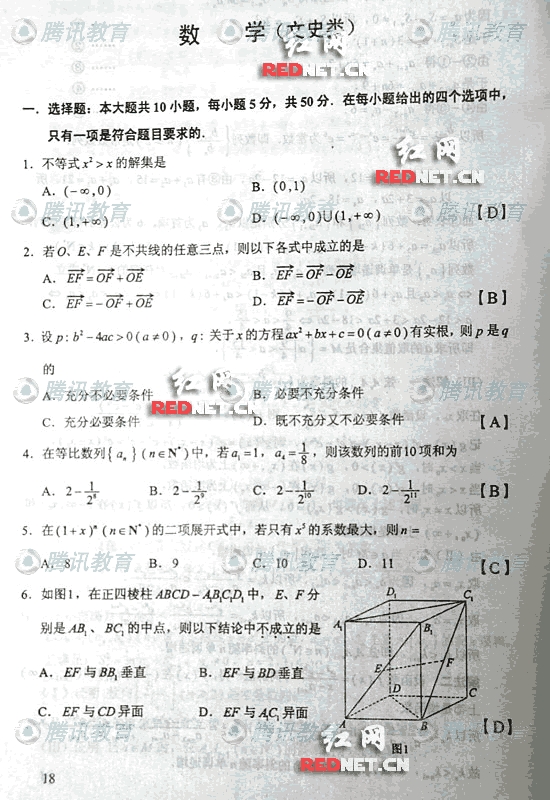 数 学（文史类）
一. 选择题：本大题共10小题，每小题5分，共50分. 在每小题给出的四个选项中，
只有一项是符合题目要求的.
1. 不等式 x²>x 的解集是
A. (-∞,0) B. (0,1)
C. (1,+∞) D. (-∞,0)∪(1,+∞) 【D】
2. 若O、E、F 是不共线的任意三点，则以下各式中成立的是
A. EF=OF+OE B. EF=OF-OE
C. EF=-OF+OE D. EF=-OF-OE 【B】
3. 设 p: b²-4ac>0(a≠0)，q: 关于x的方程ax²+bx+c=0(a≠0)有实根，则p是q
的
A. 充分不必要条件 B. 必要不充分条件
C. 充分必要条件 D. 既不充分又不必要条件 【A】
4. 在等比数列{aₙ}(n∈N*)中，若a₁=1，a₄=1/8，则该数列的前10项和为
A. 2-1/2⁸ B. 2-1/2⁹ C. 2-1/2¹⁰ D. 2-1/2¹¹ 【B】
5. 在(1+x)ⁿ(n∈N*)的二项展开式中，若只有x⁵的系数最大，则n=
A. 8 B. 9 C. 10 D. 11 【C】
6. 如图1，在正四棱柱ABCD-A₁B₁C₁D₁中，E、F分
别是AB₁、BC₁的中点，则以下结论中不成立的是
A. EF与BB₁垂直 B. EF与BD垂直
C. EF与CD异面 D. EF与A₁C₁异面 【D】
D₁ C₁
A₁ B₁
E F
D C
A B
图1
18
腾讯教育
红网
REDNET.CN